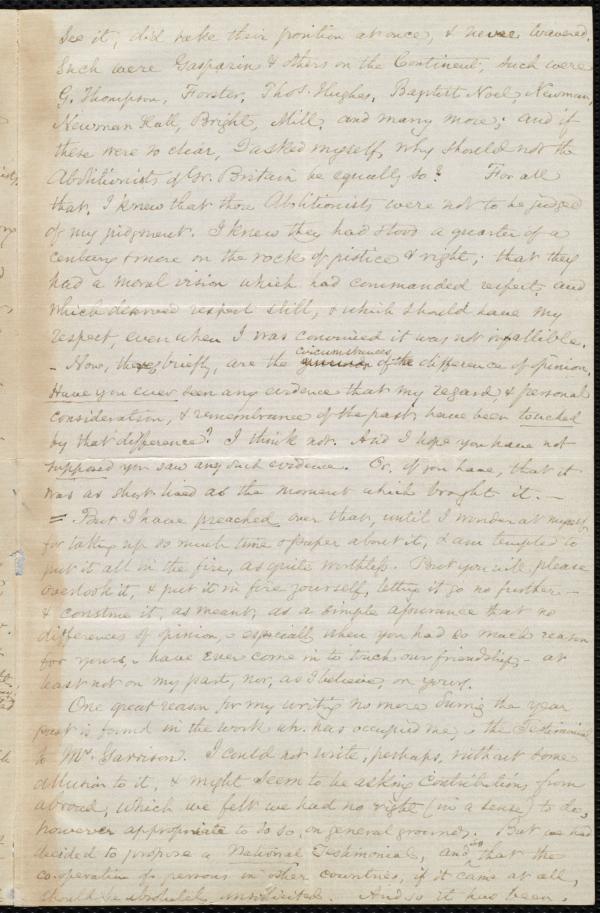 See it, did take their position at once, & never wavered.
Such were Gasparin & others on the Continent, such were
G. Thompson, Forster, Thos. Hughes, Baptist Noel, Newman,
Newman Hall, Bright, Mill, and many more; and if
these were so clear, I asked myself, why should not the
Abolitionists of Gr. Britain be equally so? For all
that, I knew that those Abolitionists were not to be judged
of my judgment. I knew they had stood a quarter of a
century & more on the rock of justice & right; that they
had a moral vision which had commanded respect, and
which deserved respect still, & which should have my
respect, even when I was convinced it was not infallible.
- Now, these, briefly, are the circumstances of the difference of opinion.
Have you ever seen any evidence that my regard, & personal
consideration, & remembrance of the past, have been touched
by that difference? I think not. And I hope you have not
supposed you saw any such evidence. Or, if you have, that it
was as short lived as the moment which brought it. -
= But I have preached over that, until I wonder at myself
for taking up so much time & paper about it, & am tempted to
put it all in the fire, as quite worthless. But you will please
overlook it, & put it in fire yourself, letting it go no further -
& construe it, as meant, as a simple assurance that no
differences of opinion, & especially when you had so much reason
for yours, have ever come in to touch our friendship - at
least not on my part, nor, as I believe, on yours.
One great reason for my writing no more during the year
past is found in the work wh. has occupied me, the Testimonial
to Mr. Garrison. I could not write, perhaps, without some
allusion to it, & might seem to be asking Contributions from
abroad, which we felt we had no right (in a sense) to do,
however appropriate to do so, on general grounds. But we had
decided to propose a National Testimonial, and that the
co-operation of persons in other countries, if it came at all,
should be absolutely unsolicited. And so it has been.